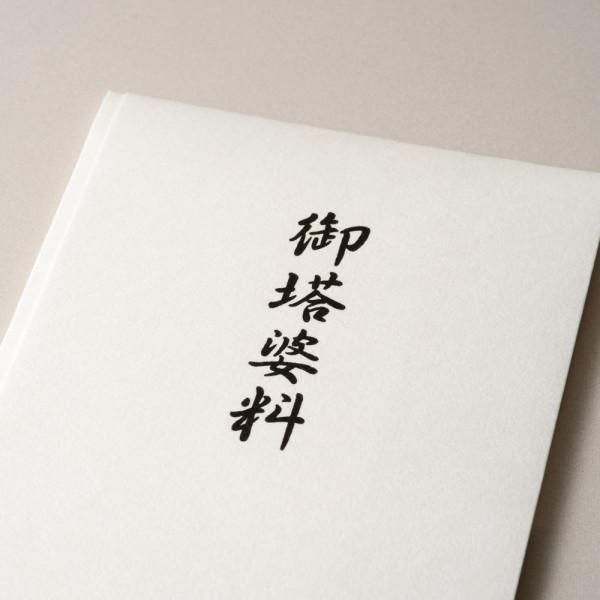 御塔婆料